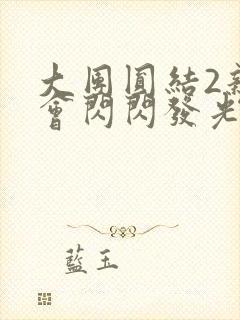 大團圓結2新
會閃閃發光
藍玉